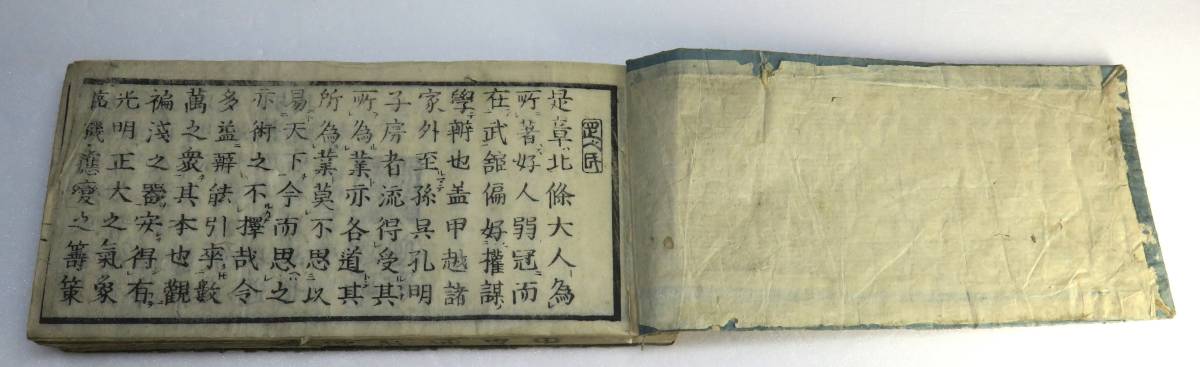 是章北條大人為
所著好人弱冠而
在武舘偏好權謀
學辨也盖甲越諸
家外至孫呉孔明
子房者流得受其
所為業亦各道其
所為業莫不思以
易天下令而思之
亦術之不擇哉令
多益辨能引率數
萬之衆其本也觀
褊淺之器安得有
光明正大之氣象
臨機應變之籌策